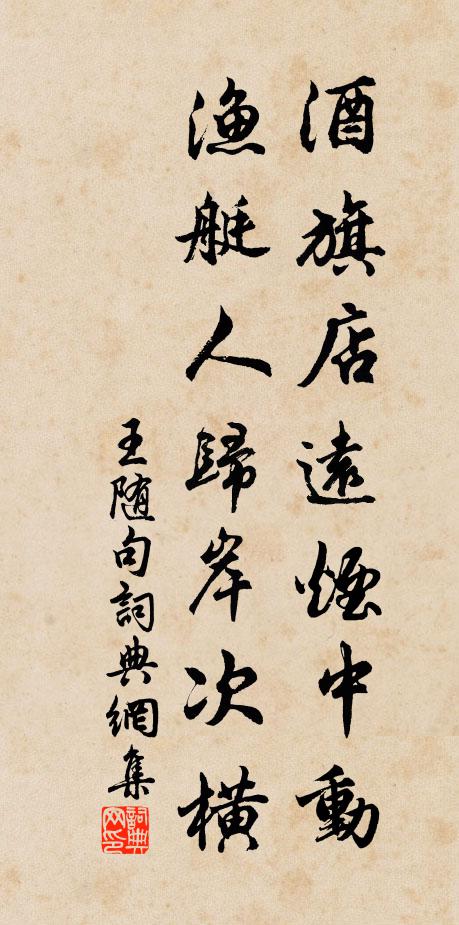 酒旗店遠煙中動
漁艇人歸岸次橫
王随句詞典網集
詞典网印